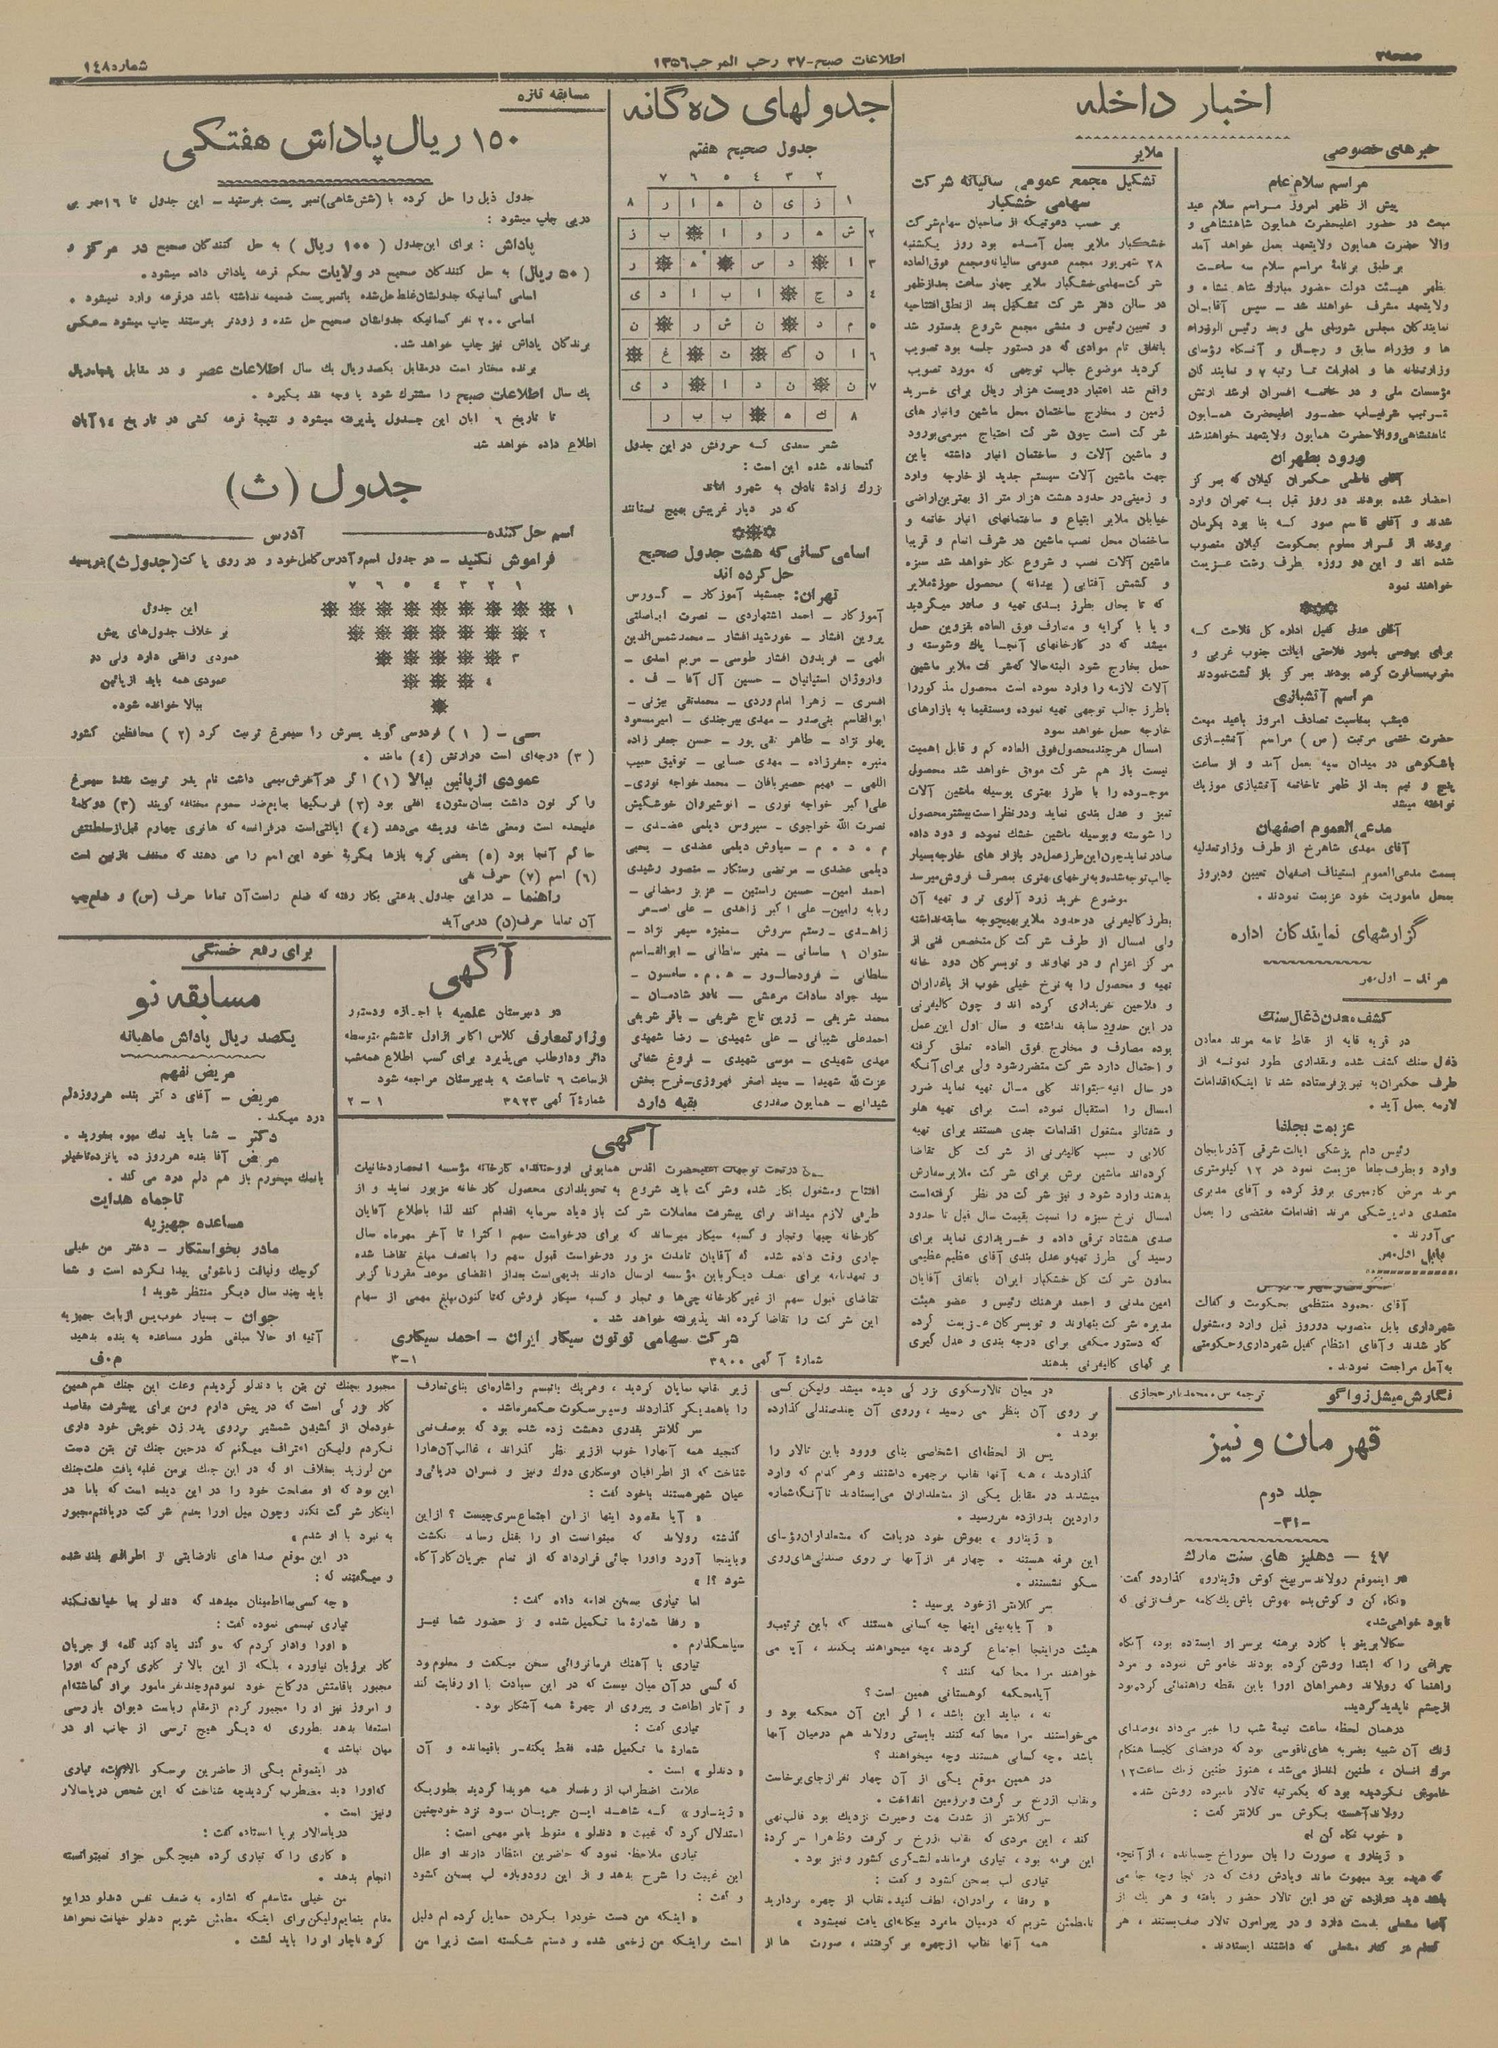 صفحه ۳
اطلاعات صبح - ۲۷ رجب المرجب ۱۳۵۶
شماره ۱۴۸
اخبار داخله
خبرهای خصوصی
مراسم سلام عام
پیش از ظهر امروز مراسم سلام عید
مبعث در حضور اعلیحضرت همایون شاهنشاهی و
والا حضرت همایون ولایتعهد بعمل خواهد آمد
بر طبق برنامهٔ مراسم سلام سه ساعت
بظهر هیئت دولت حضور مبارک شاهنشاه و
ولایتعهد مشرف خواهند شد – سپس آقایان
نمایندگان مجلس شورای ملی وبعد رئیس الوزراء
ها و وزراء سابق و رجال و آنگاه رؤسای
وزارتخانه ها و ادارات تا رتبه ۷ و نمایندگان
مؤسسات ملی و در خاتمه افسران ارشد ارتش
بترتیب شرفیاب حضور اعلیحضرت همایون
شاهنشاهی ووالاحضرت همایون ولایتعهد خواهندشد
ورود بطهران
آقای فاطمی حکمران گیلان که بمرکز
احضار شده بودند دو روز قبل به تهران وارد
شدند و آقای قاسم صور که بنا بود بکرمان
بروند از قرار معلوم بحکومت گیلان منصوب
شده اند و این دو روزه بطرف رشت عزیمت
خواهند نمود
آقای عدل کفیل اداره کل فلاحت که
برای بررسی بامور فلاحتی ایالت جنوب غربی و
مغرب مسافرت کرده بودند بمرکز بازگشت نمودند
مراسم آتشبازی
دیشب بمناسبت تصادف امروز باعید مبعث
حضرت ختمی مرتبت (ص) مراسم آتشبازی
باشکوهی در میدان سپه بعمل آمد و از ساعت
پنج و نیم بعد از ظهر تاخاتمه آتشبازی موزیک
نواخته میشد
مدعی العموم اصفهان
آقای مهدی شاهرخ از طرف وزارت عدلیه
بسمت مدعی العموم استیناف اصفهان تعیین ودیروز
بمحل ماموریت خود عزیمت نمودند .
گزارشهای نمایندگان اداره
مرند – اول مهر
کشف معدن ذغال سنگ
در قریه
ذغال سنگ کشف شده ومقداری بطور نمونه از
طرف حکمران به تبریز فرستاده شد تا اینکه اقدامات
لازمه بعمل آید .
عزیمت بجلفا
رئیس دام پزشکی ایالت شرقی آذربایجان
وارد وبطرف جلفا عزیمت نمود در ۱۲ کیلومتری
مرند مرض گاومیری بروز کرده و آقای مدبری
متصدی دامپزشکی مرند اقدامات مقتضی را بعمل
می آورند .
بابل اول مهر
آقای محمود منتظمی بحکومت و کفالت
شهرداری بابل منصوب دوروز قبل وارد ومشغول
کار شدند وآقای انتظام کفیل شهرداری وحکومتی
به آمل مراجعت نمودند .
ملایر
تشکیل مجمع عمومی سالیانه شرکت
سهامی خشکبار
بر حسب دعوتیکه از صاحبان سهام شرکت
خشکبار ملایر بعمل آمده بود روز یکشنبه
۲۸ شهریور مجمع عمومی سالیانه ومجمع فوق العاده
شرکت سهامی خشکبار ملایر چهار ساعت بعدازظهر
در سالن دفتر شرکت تشکیل بعد ازنطق افتتاحیه
و تعیین رئیس و منشی مجمع شروع بدستور شد
باتفاق تام موادی که در دستور جلسه بود تصویب
گردید موضوع جالب توجهی که مورد تصویب
واقع شد اعتبار دویست هزار ریال برای خرید
زمین و مخارج ساختمان محل ماشین وانبارهای
شرکت است چون شرکت احتیاج مبرمی بورود
و ماشین آلات و ساختمان انبار داشته باین
جهت ماشین آلات سیستم جدید از خارجه وارد
و زمینی در حدود هشت هزار متر از بهترین اراضی
خیابان ملایر ابتیاع و ساختمانهای انبار خاتمه و
ساختمان محل نصب ماشین در شرف اتمام و قریبا
ماشین آلات نصب و شروع بکار خواهد شد سبزه
و کشمش آفتابی (بیدانه) محصول حوزهٔ ملایر
که تا بحال بطرز بدی تهیه و صادر میگردید
و یا با کرایه و مصارف فوق العاده بقزوین حمل
میشد که در کارخانهای آنجا پاک وشسته و
حمل بخارج شود البته حالا که شرکت ملایر ماشین
آلات لازمه را وارد نموده است محصول مذکور را
باطرز جالب توجهی تهیه نموده ومستقیما به بازارهای
خارجه حمل خواهد نمود
امسال هرچند محصول فوق العاده کم و قابل اهمیت
نیست باز هم شرکت موفق خواهد شد محصول
موجوده را با طرز بهتری بوسیله ماشین آلات
تمیز و عدل بندی نماید ودرنظر است بیشتر محصول
را شوسته وبوسیله ماشین خشک نموده و دود داده
صادر نماید چون این طرز عمل در بازار های خارجه بسیار
جالب توجه شده و به نرخهای بهتری بمصرف فروش میرسد
موضوع خرید زرد آلوی تر و تهیه آن
بطرز کالیفرنی درحدود ملایر بهیچوجه سابقه نداشته
ولی امسال از طرف شرکت کل متخصص فنی از
مرکز اعزام و در نهاوند و تویسرکان دود خانه
تهیه و محصول را به نرخ خیلی خوب از باغداران
و فلاحین خریداری کرده اند و چون کالیفرنی
در این حدود سابقه نداشته و سال اول این عمل
بوده مصارف و مخارج فوق العاده تعلق گرفته
و احتمال دارد شرکت متضرر شود ولی برای آنکه
در سال آتیه بتواند کلی مال تهیه نماید ضرر
امسال را استقبال نموده است برای تهیه هلو
و شفتالو مشغول اقدامات جدی هستند برای تهیه
گلابی و سیب کالیفرنی از شرکت کل تقاضا
کرده اند ماشین برش برای شرکت ملایر سفارش
بدهند وارد شود و نیز شرکت در نظر گرفته است
امسال نرخ سبزه را نسبت بقیمت سال قبل تا حدود
صدی هشتاد ترقی داده و خریداری نماید برای
رسیدگی طرز تهیه و عدل بندی آقای عظیم عظیمی
معاون شرکت کل خشکبار ایران باتفاق آقایان
امین مدنی و احمد فرهنگ رئیس و عضو هیئت
مدیره شرکت بنهاوند و تویسرکان عزیمت کرده
که دستور مکفی برای درجه بندی و عدل گیری
برگهای کالیفرنی بدهند
جدولهای ده گانه
جدول صحیح هفتم
۲ ۳ ۴ ۵ ۶ ۷
۱ ز ی ن ه ا ر ۸
۲ ش ه ر و ا ب ز
۳ ا د س ه ر
۴ د ج ا ب ا د ی
۵ م د ن ش ر ن
۶ ا ن ک ت غ
۷ ن ن د ا د ی
۸ ک ه ب ب ر
شعر سعدی که حروفش در این جدول
گنجانده شده این است :
بزرگ زادهٔ نادان به شهروا ماند
که در دیار غریبش بهیچ نستانند
اسامی کسانی که هشت جدول صحیح
حل کرده اند
تهران : جمشید آموزکار – کورس
آموزکار – احمد اشتهاردی – نصرت اباصلتی
پروین افشار – خورشید افشار – محمد شمس الدین
الهی – فریدون افشار طوسی – مریم اسدی –
واروژان استپانیان – حسین آل آقا – ف .
افسری – زهرا امام وردی – محمدتقی بیژنی –
ابوالقاسم بنی صدر – مهدی بیرجندی – امیرمسعود
پهلو نژاد – طاهر تقی پور – حسن جعفر زاده
منیره جعفرزاده – مهدی حسابی – توفیق حبیب
اللهی – فهیم حصیربافان – محمد خواجه نوری –
علی اکبر خواجه نوری – انوشیروان خوشکیش
نصرت الله خواجوی – سیروس دیلمی عضدی –
م . د . م – سیاوش دیلمی عضدی – یحیی
دیلمی عضدی – مرتضی رستگار – منصور رشیدی
احمد امین – حسین راستین – عزیز رمضانی –
ربابه رامین – علی اکبر زاهدی – علی اصغر
زاهدی – رستم سروش – منیژه سپهر نژاد –
ستوان ۱ ساسانی – منیر سلطانی – ابوالقاسم
سلطانی – فرود سالور – ه . م . سامسون –
سید جواد سادات مرعشی – نادر شادمان –
محمد شریفی – زرین تاج شریفی – باقر شریفی
احمدعلی شیبانی – علی شهیدی – رضا شهیدی
مهدی شهیدی – موسی شهیدی – فروغ شفائی
عزت الله شهیدا – سید اصغر فهروزی – فرح بخش
شیدائی – همایون صفدری بقیه دارد
مسابقه تازه
۱۵۰ ریال پاداش هفتگی
جدول ذیل را حل کرده با (شش شاهی) تمبر پست بفرستید – این جدول تا ۱۶ مهر پی
درپی چاپ میشود :
پاداش : برای این جدول (۱۰۰ ریال) به حل کنندگان صحیح در مرکز و
(۵۰ ریال) به حل کنندگان صحیح در ولایات بحکم قرعه پاداش داده میشود .
اسامی کسانیکه جدولشان غلط حل شده یا تمبر پست ضمیمه نداشته باشد درقرعه وارد نمیشود .
اسامی ۲۰۰ نفر کسانیکه جدولشان صحیح حل شده و زودتر بفرستند چاپ میشود – عکس
برندگان پاداش نیز چاپ خواهد شد .
برنده مختار است درمقابل یکصد ریال یک سال اطلاعات عصر و در مقابل پنجاه ریال
یک سال اطلاعات صبح را مشترک شود یا وجه نقد بگیرد .
تا تاریخ ۶ آبان این جدول پذیرفته میشود و نتیجهٔ قرعه کشی در تاریخ ۱۴ آبان
اطلاع داده خواهد شد
جدول (ث)
اسم حل کننده ——— آدرس ———
فراموش نکنید – در جدول اسم و آدرس کامل خود و در روی پاکت (جدول ث) بنویسید
۱ ۲ ۳ ۴ ۵ ۶ ۷
۱
۲
۳
۴
این جدول
بر خلاف جدول های پیش
عمودی وافقی دارد ولی در
عمودی همه باید ازپائین
ببالا خوانده شود .
(۱) فردوسی گوید پسرش را سیمرغ تربیت کرد (۲) محافظین کشور
(۳) درجه ای است درارتش (۴) مانند .
عمودی ازپائین ببالا (۱) اگر درآخرش میمی داشت نام پدر تربیت شدهٔ سیمرغ
واگر نون داشت بسان ستون ۴ افقی بود (۲) فرنگیها بپایم ضد سموم مختلفه گویند (۳) دو کلمهٔ
علیحده است ومعنی شاخه وریشه می دهد (۴) ایالتی است درفرانسه که هانری چهارم قبل از سلطنتش
حاکم آنجا بود (۵) بعضی گربه بازها بگربهٔ خود این اسم را می دهند که مخفف نازنین است
(۶) اسم (۷) حرف نفی
راهنما – دراین جدول بدعتی بکار رفته که ضلع راست آن تماما حرف (س) و ضلع چپ
آن تماما حرف (ن) درمی آید
آگهی
در دبیرستان علمیه با اجازه ودستور
وزارت معارف کلاس اکابر ازاول تا ششم متوسطه
دائر وداوطلب می پذیرد برای کسب اطلاع همه شب
ازساعت ۶ تا ساعت ۹ بدبیرستان مراجعه شود
شمارهٔ آگهی ۳۹۲۳ ۱–۲
برای رفع خستگی
مسابقه نو
یکصد ریال پاداش ماهیانه
مریض نفهم
مریض – آقای دکتر بنده هرروز دلم
درد میکند .
دکتر – شما باید نمک میوه بخورید .
مریض آقا بنده هرروز ده پانزده تا خیار
بانمک میخورم باز هم دلم درد می کند .
تاجماه هدایت
مساعده جهیزیه
مادر بخواستگار – دختر من خیلی
کوچک ولیاقت زناشوئی پیدا نکرده است و شما
باید چند سال دیگر منتظر شوید !
جوان – بسیار خوب پس ازبابت جهیزیه
آتیه او حالا مبلغی بطور مساعده به بنده بدهید
م . ف
آگهی
چون درتحت توجهات اعلیحضرت اقدس همایونی ارواحنافداه کارخانه مؤسسه انحصاردخانیات
افتتاح ومشغول بکار شده وشرکت باید شروع به تحویلداری محصول کارخانه مزبور نماید و از
طرفی لازم میداند برای پیشرفت معاملات شرکت بازدیاد سرمایه اقدام کند لذا باطلاع آقایان
کارخانه چیها وتجار و کسبه سیگار میرساند که برای درخواست سهم اکثرا تا آخر مهرماه سال
جاری وقت داده شده که آقایان تامدت مزبور درخواست قبول سهم را بانصف مبلغ تقاضا شده
و تعهدنامه برای نصف دیگر باین مؤسسه ارسال دارند بدیهی است بعداز انقضای موعد مقررناگزیر
تقاضای قبول سهم از غیرکارخانه چی ها و تجار و کسبه سیگار فروش که تا کنون مبلغ مهمی از سهام
این شرکت را تقاضا کرده اند پذیرفته خواهد شد .
شرکت سهامی توتون سیگار ایران – احمد سیگاری
شمارهٔ آگهی ۳۹۰۰ ۱–۳
نگارش میشل زواگو
قهرمان ونیز
جلد دوم
–۳۱–
۴۷ – دهلیز های سنت مارک
در اینموقع رولاند سر بیخ گوش «ژینارو» گذارد و گفت:
«نگاه کن و گوش بده بهوش باش یک کلمه حرف نزنی که
نابود خواهی شد»
سکالابرینو با کارد برهنه برسر او ایستاده بود ، آنگاه
چراغی را که ابتدا روشن کرده بودند خاموش نموده و مرد
راهنما که رولاند وهمراهان اورا باین نقطه راهنمائی کرده بود
ازچشم ناپدید گردید .
درهمان لحظه ساعت نیمهٔ شب را خبر میداد ، وصدای
زنگ آن شبیه بضربه های ناقوسی بود که درفضای کلیسا هنگام
مرگ انسان ، طنین انداز می شد ، هنوز طنین زنگ ساعت ۱۲
خاموش نگردیده بود که یکمرتبه تالار نامبرده روشن شد .
رولاند آهسته بگوش سر کلانتر گفت :
« خوب نگاه کن »
« ژینارو » صورت را بان سوراخ چسبانده ، از آنچه
که دیده بود مبهوت ماند
در میان تالار سکوی بزرگی دیده میشد ولیکن کسی
بر روی آن بنظر نمی رسید ، وروی آن چند صندلی گذارده
بودند .
پس از لحظه ای اشخاصی بنای ورود باین تالار را
گذاردند ، همه آنها نقاب برچهره داشتند وهر کدام که وارد
میشدند در مقابل یکی از مشعلداران می ایستادند تا آنکه شماره
واردین بدوازده نفر رسید .
« ژینارو » بهوش خود دریافت که مشعلداران رؤسای
این فرقه هستند . چهار نفر از آنها بر روی صندلی های روی
سکو نشستند .
سر کلانتر از خود پرسید :
« آیا به بینی اینها چه کسانی هستند که باین ترتیب و
هیئت دراینجا اجتماع کردند ، چه میخواهند بکنند ، آیا می
خواهند مرا محاکمه کنند ؟
آیا محکمه کوهستانی همین است ؟
نه ، نباید این باشد ، اگر این آن محکمه بود و
می خواستند مرا محاکمه کنند بایستی رولاند هم درمیان آنها
باشد . چه کسانی هستند وچه میخواهند ؟
در همین موقع یکی از آن چهار نفر ازجای برخاست
ونقاب ازرخ بر گرفت وبرزمین انداخت .
سر کلانتر از شدت بهت وحیرت نزدیک بود قالب تهی
کند ، این مردی که نقاب ازرخ بر گرفت وظاهرا سر کردهٔ
این فرقه بود ، تیاری فرمانده لشگری کشور ونیز بود .
تیاری لب بسخن گشود و گفت :
« رفقا ، برادران ، لطف کنید . نقاب از چهره بردارید
تا مطمئن شویم که درمیان ما مرد بیگانه ای یافت نمیشود »
همه آنها نقاب ازچهره بر گرفتند ، صورت ها از
زیر نقاب نمایان گردید ، وهریک باتبسم واشاره ای بنای تعارف
را باهمدیگر گذاردند وسپس سکوت حکمفرما شد .
سر کلانتر بقدری دهشت زده شده بود که بوصف نمی
گنجید همه آنهارا خوب اززیر نظر گذراند ، غالب آن هارا
شناخت که از اطرافیان فوسکاری دوک ونیز و افسران دریائی و
اعیان شهر هستند باخود گفت :
« آیا مقصود اینها از این اجتماع سری چیست ؟ ازاین
گذشته رولاند که میتوانست او را بقتل رساند نکشت
وباینجا آورد واورا جائی قرارداد که از تمام جریان کار آگاه
شود ؟! »
اما تیاری بسخن ادامه داده گفت :
« رفقا شمارهٔ ما تکمیل شده و از حضور شما نیز
سپاسگذارم .
تیاری با آهنگ فرمانروائی سخن میگفت و معلوم بود
که کسی در آن میان نیست که در این سیادت با او رقابت کند
و آثار اطاعت و پیروی از چهرهٔ همه آشکار بود .
تیاری گفت :
شمارهٔ ما تکمیل شده فقط یکنفر باقیمانده و آن
« دندلو » است .
علامت اضطراب از رخسار همه هویدا گردید بطوریکه
«ژینارو» که شاهد این جریان بود نزد خود چنین
استدلال کرد که غیبت « دندلو » منوط بامر مهمی است :
تیاری ملاحظه نمود که حاضرین انتظار دارند او علل
این غیبت را شرح بدهد و از این رودوباره لب بسخن گشود
و گفت :
« اینکه من دست خودرا بگردن حمایل کرده ام دلیل
است براینکه من زخمی شده و دستم شکسته است زیرا من
مجبور بجنگ تن بتن با دندلو گردیدم وعلت این جنگ هم همین
کار بزرگی است که در پیش دارم ومن برای پیشرفت مقاصد
خودمان از کشیدن شمشیر برروی پدر زن خویش خود داری
نکردم ولیکن اعتراف میکنم که درحین جنگ تن بتن دست
من لرزید بخلاف او که در این جنگ برمن غلبه یافت علت جنگ
این بود که او مصلحت خود را در این دیده است که باما در
اینکار شرکت نکند وچون میل اورا بعدم شرکت دریافتم مجبور
به نبرد با او شدم »
در این موقع صدا های نارضایتی از اطراف بلند شده
و میگفتند که :
« چه کسی بما اطمینان میدهد که دندلو بما خیانت نکند
تیاری تبسمی نموده گفت :
« اورا وادار کردم که سوگند یاد کند کلمه از جریان
کار برزبان نیاورد ، بلکه از این بالاتر کاری کردم که اورا
مجبور باقامتش درکاخ خود نمودم وچند نفر مامور براو گماشته ام
و امروز نیز او را مجبور کردم از مقام ریاست دیوان بازرسی
استعفا بدهد بطوری که دیگر هیچ ترسی از جانب او در
میان نباشد »
در اینموقع یکی از حاضرین برسکو بالارفت ، تیاری
که اورا دید مضطرب گردید چه شناخت که این شخص دریاسالار
ونیز است .
دریاسالار برپا ایستاده گفت :
« کاری را که تیاری کرده هیچکس جز او نمیتوانسته
انجام بدهد .
من خیلی متاسفم که اشاره به ضعف نفس دندلو در این
مقام بنمایم ولیکن برای اینکه مطمئن شویم دندلو خیانت نخواهد
کرد ناچار او را باید کشت .